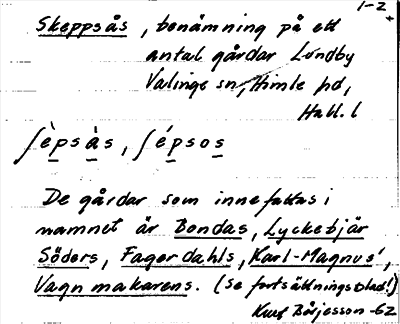 1-2
Skeppsås, benämning på ett
antal gårdar Lundby
Valinge sn, Himle hd,
Hall. l
ʃèpsàs, ʃépsos
De gårdar som innefattas i
namnet är Bondas, Lyckebjär
Söders, Fagerdahls, Karl-Magnus',
Vagnmakarens. (se fortsättningsblad!)
Kurt Börjesson -62